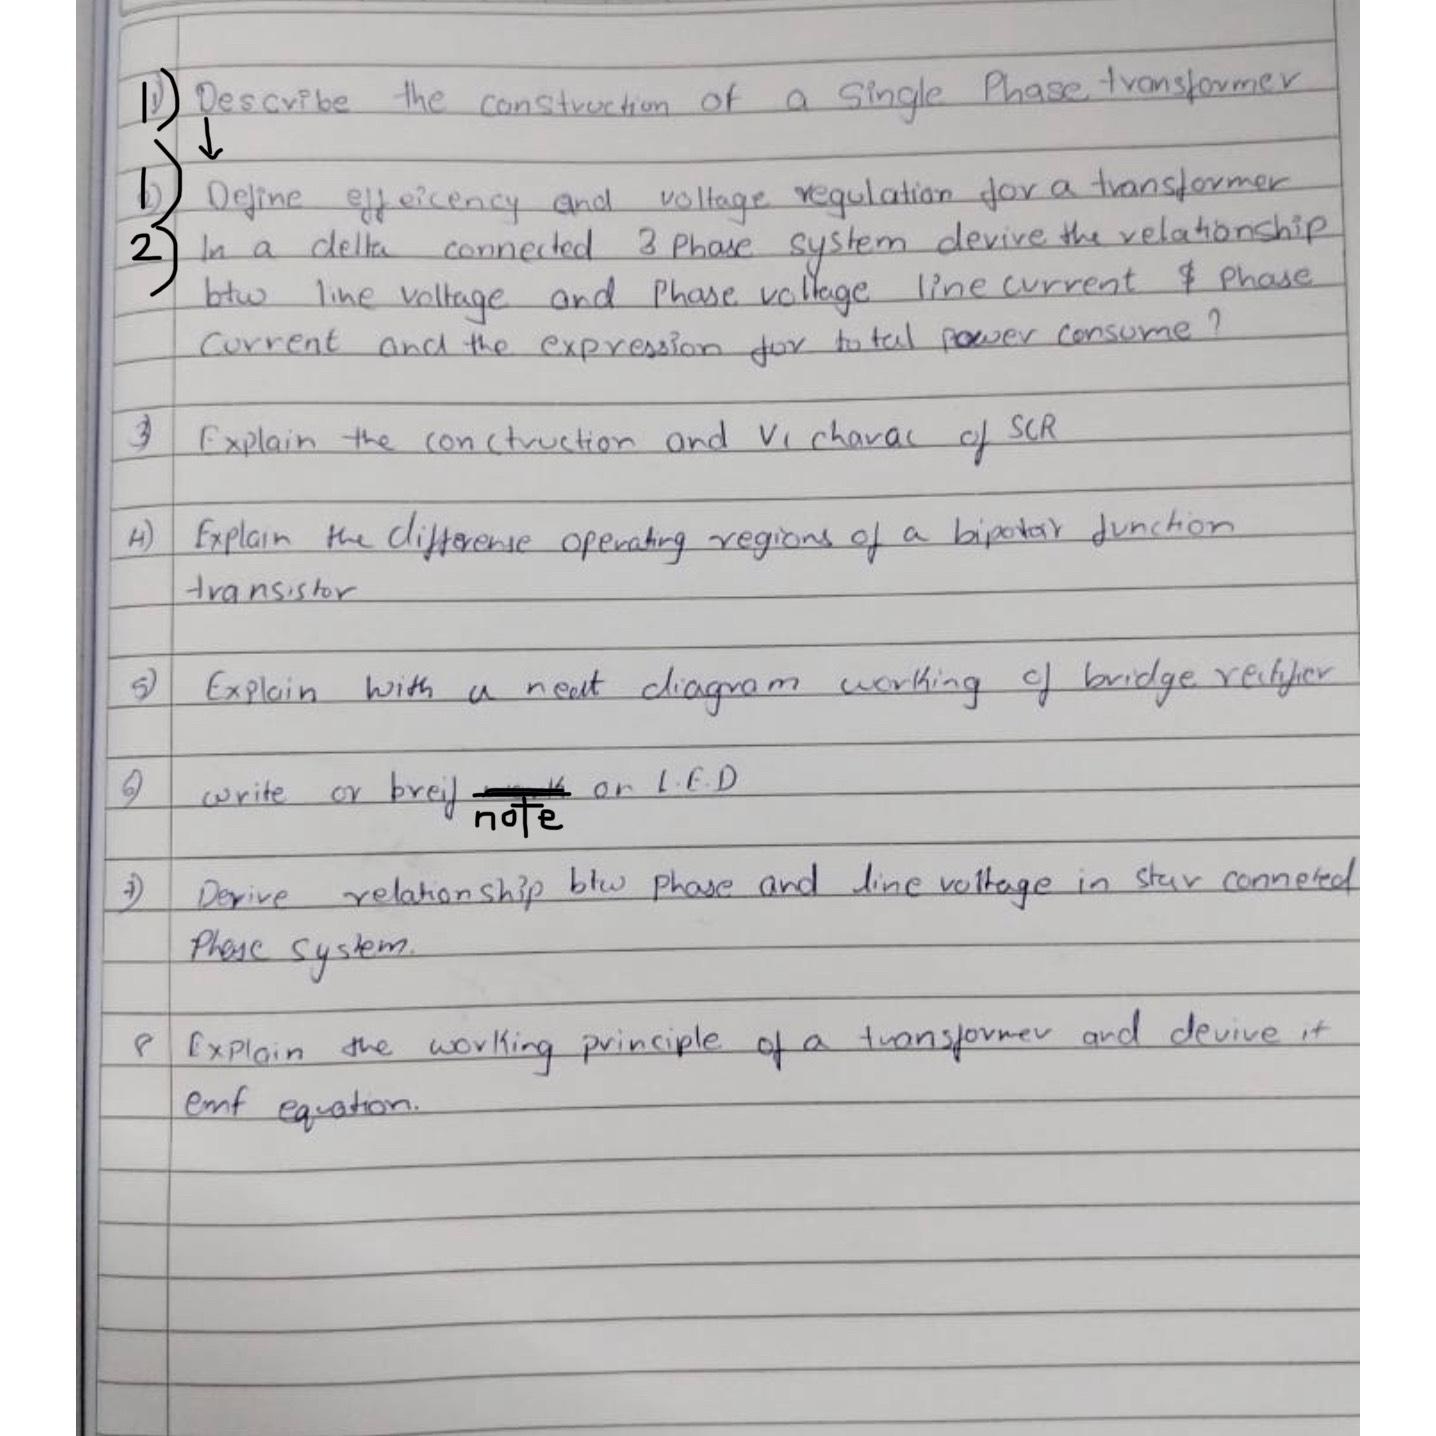 1) Describe the construction of a single Phase transformer
↓
1) Define effeicency and voltage regulation for a transformer
2) In a delta connected 3 Phase system derive the relationship
btw line voltage and Phase voltage line current & Phase
Current and the expression for total power consume?
3 Explain the conctruction and VI charac of SCR
4) Explain the differense operating regions of a bipolar Junction
transistor
5) Explain with a neat diagram working of bridge rectifier
6) write or breif on L.E.D
note
7) Derive relationship btw phase and line voltage in star conneted
Phase system.
8 Explain the working principle of a transformer and derive it
emf equation.